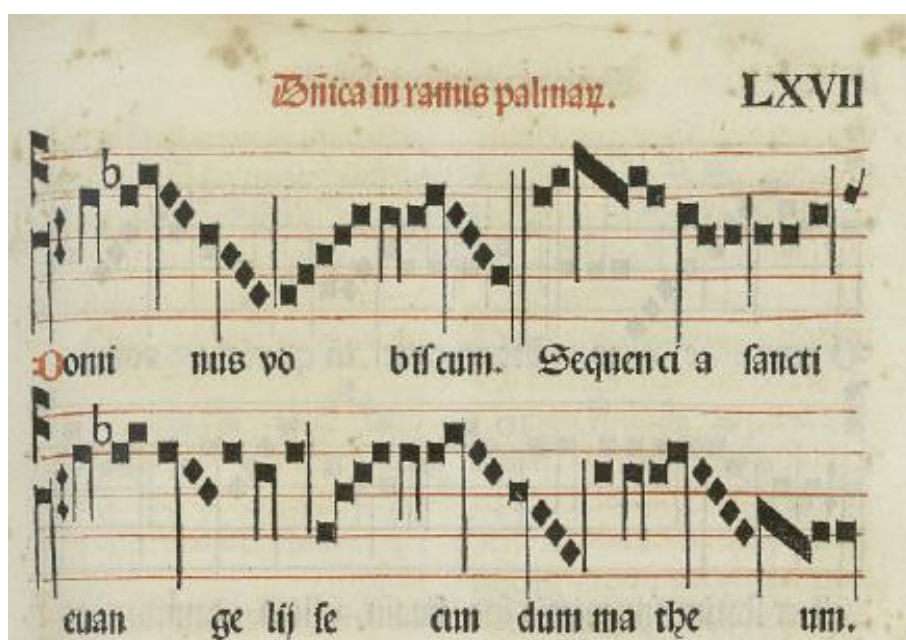 Dñica in ramis palmaꝝ. LXVII
Domi nus vo biscum. Sequenci a sancti
euan ge lij se cun dum ma the um.